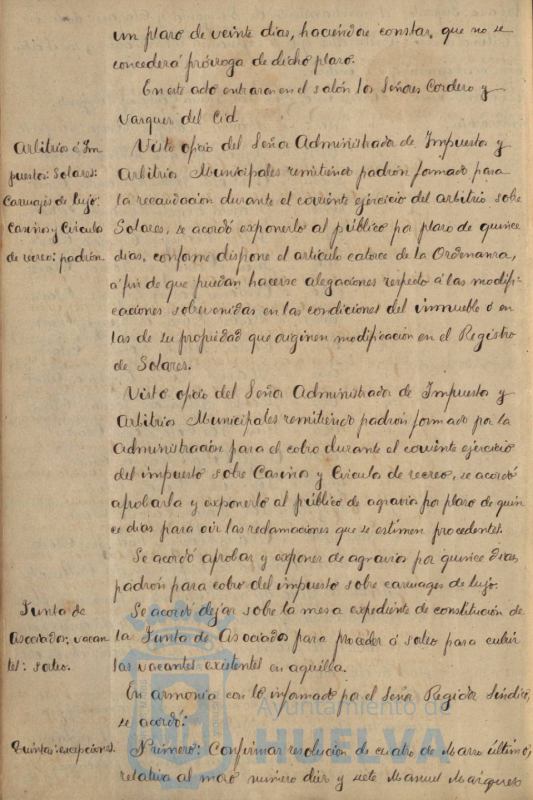 un plazo de veinte dias, haciendose constar, que no se
concederá próvroga de dicho plazo.
En este acto entraron en el salón los Señores Cordero y
Vazquez del Cid.
Arbitrios é Im
puestos: Solares:
Carruajes de lujo:
Casinos y Circulos
de recreo: padrón.
Visto oficio del Señor Administrador de Impuestos y
Arbitrios Municipales remitiendo padrón formado para
la recaudación durante el corriente ejercicio del arbitrio sobre
Solares, se acordó exponerlo al público por plazo de quince
dias, conforme dispone el articulo catorce de la Ordenanza,
á fin de que puedan hacerse alegaciones respecto á las modifi-
caciones sobrevenidas en las condiciones del inmueble ó en
las de su propiedad que originen modificación en el Registro
de Solares.
Visto oficio del Señor Administrador de Impuestos y
Arbitrios Municipales remitiendo padrón formado por la
Administración para el cobro durante el corriente ejercicio
del impuesto sobre Casinos y Circulos de recreo, se acordó
aprobarlo y exponerlo al público de agravios por plazo de quin
ce dias para oir las reclamaciones que se estimen procedentes.
Se acordó aprobar y exponer de agravios por quince dias,
padrón para cobro del impuesto sobre carruages de lujo.
Junta de
Asociados: vacan
tes: sorteo.
Se acordó dejar sobre la mesa expediente de constitución de
la Junta de Asociados para proceder á sorteo para cubrir
las vacantes existentes en aquella.
En armonia con lo informado por el Señor Regidor Sindico,
se acordó:
Quintas: excepciones.
Primero: Confirmar resolución de cuatro de Marzo último,
relativa al mozo número diez y siete Manuel Marquez
Ayuntamiento de
HUELVA